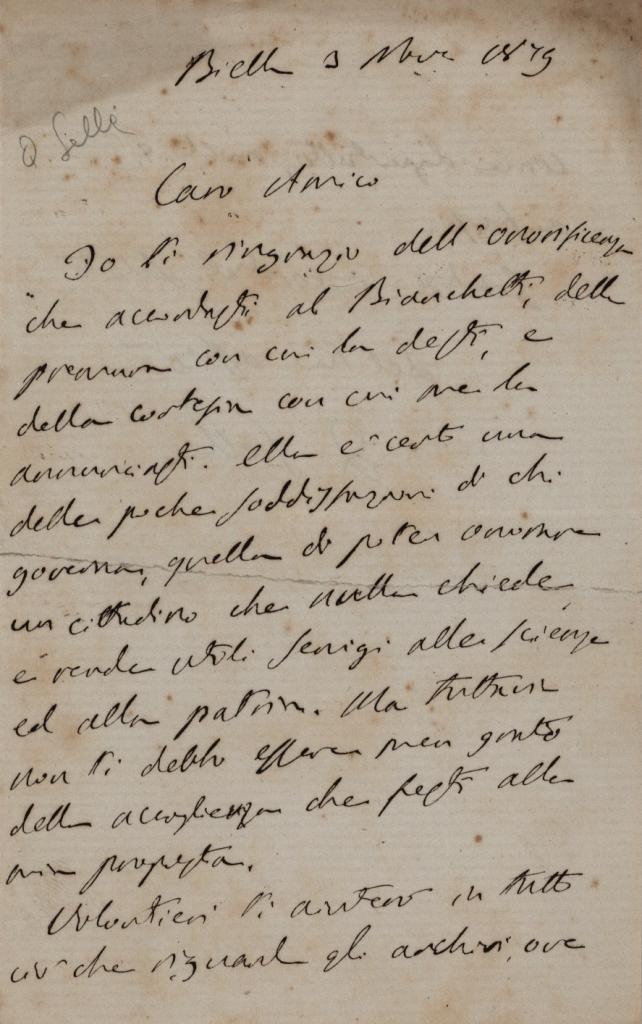 Biella 3 Nove 1879
Q. Sella
Caro Amico
Io ti ringrazio dell'onorificenza
che accordasti al Bianchetti, della
premura con cui la desti, e
della cortesia con cui me la
annunciasti. Ella è certo una
delle poche soddisfazioni di chi
governa, quella di poter onorare
un cittadino che nulla chiede
e rende utili servigi alla scienza
ed alla patria. Ma tuttavia
non ti debbo essere men grato
della accoglienza che festi alla
mia proposta.
Volontieri ti aiuterò in tutto
ciò che riguarda gli archivi, ove